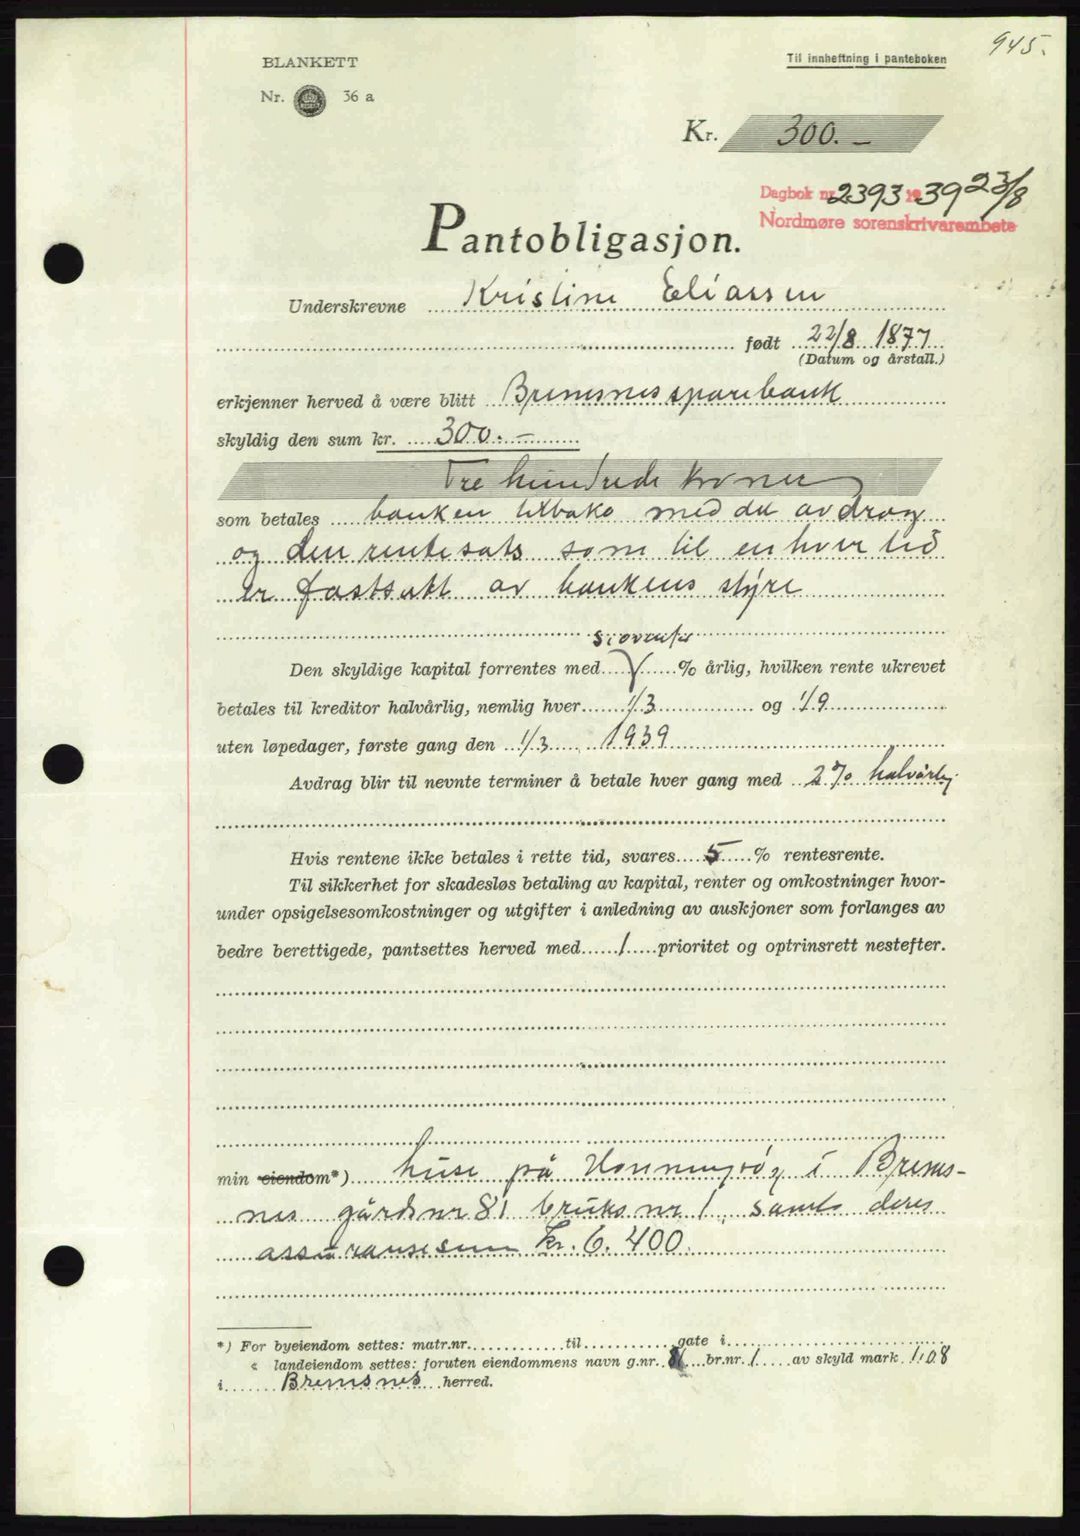 945.
BLANKETT
Til innheftning i panteboken
Nr. 36 a
Kr. 300.-
Dagbok nr. 2393 1939 23/8
Nordmøre sorenskrivarembete
Pantobligasjon.
Underskrevne Kristine Eliassen
født 22/8 1877
(Datum og årstall.)
erkjenner herved å være blitt Bremsnes sparebank
skyldig den sum kr. 300.-
Tre hundrede kroner
som betales banken tilbake med de avdrag
og den rentesats som til enhver tid
er fastsatt av bankens styre
Den skyldige kapital forrentes med % årlig, hvilken rente ukrevet
betales til kreditor halvårlig, nemlig hver 1/3 og 1/9
uten løpedager, første gang den 1/3 1939
Avdrag blir til nevnte terminer å betale hver gang med 2% halvårlig
Hvis rentene ikke betales i rette tid, svares 5 % rentesrente.
Til sikkerhet for skadesløs betaling av kapital, renter og omkostninger hvor-
under opsigelsesomkostninger og utgifter i anledning av auskjoner som forlanges av
bedre berettigede, pantsettes herved med 1 prioritet og optrinsrett nestefter.
min eiendom*) huse på i Brems-
nes gårdsnr 81 bruksnr 1, samt deres
assuransesum kr. 6.400.
*) For byeiendom settes: matr.nr. til gate i
« landeiendom settes: foruten eiendommens navn g.nr. 81 br.nr. 1 av skyld mark 1.08
i Bremsnes herred.